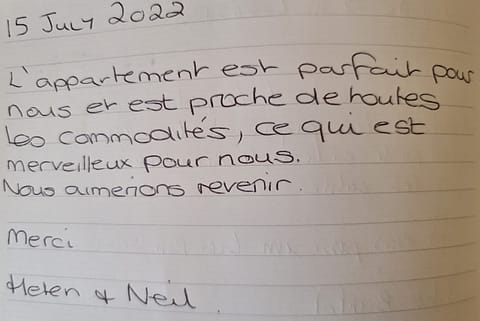 15 July 2022
L'appartement est parfait pour
nous et est proche de toutes
les commodités, ce qui est
merveilleux pour nous.
Nous aimerions revenir.
Merci
Helen & Neil.